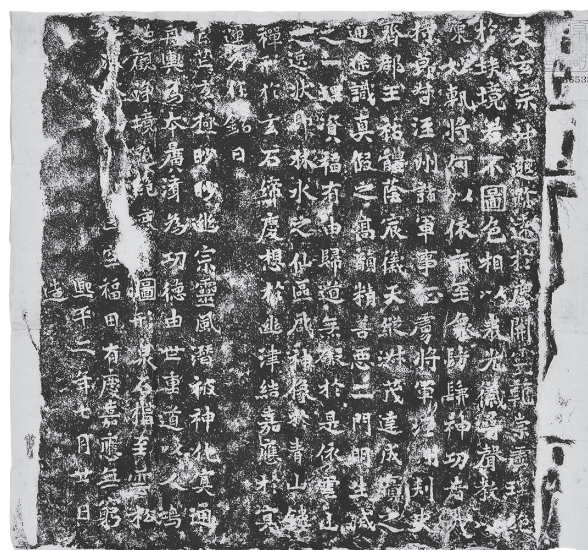 夫玄宗沖邈跡遠於塵關靈範崇虛理絕
於埃境若不圖色相以表光儀尋聲教以
陳妙軌將何以依希至像仿佛神功者哉
持節督涇州諸軍事征虜將軍涇州刺史
齊郡王祐體蔭宸儀天縱淑茂達成實之
通途識真假之高韻精善惡二門明生滅
之一理資福有由歸道無礙於是依雲山
之逸狀即林水之仙區啟神像於青山鏤
禪形於玄石締慶想於幽津結嘉應於冥
運乃作銘曰
茫茫玄極眇眇幽宗靈風潛被神化冥通
舟輿為本廣濟為功德由世重道以人鴻
觀淨境絕圖形泉石構至雲松
空福田有慶嘉應無窮
熙平二年七月廿日
造